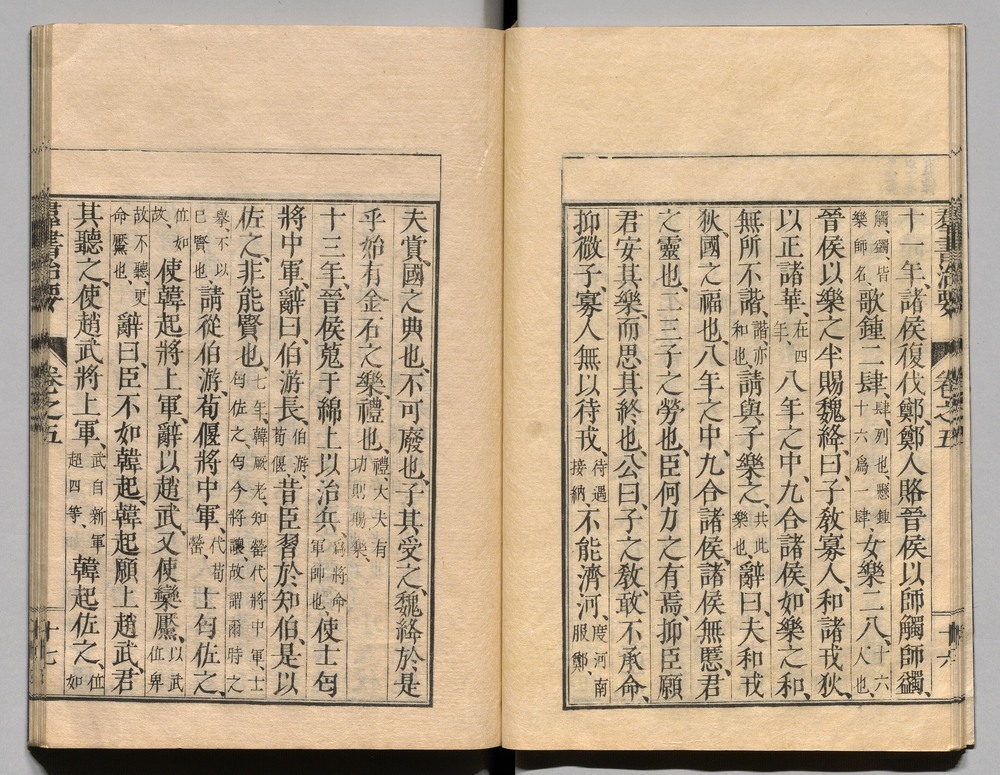 十一年、諸侯復伐鄭、鄭人賂晉侯以師觸師蠲、
觸、蠲、皆樂師名、歌鍾二肆、肆、列也、懸鍾十六爲一肆、女樂二八、十六人也、
晉侯以樂之半賜魏絳曰、子教寡人、和諸戎狄、
以正諸華、在四年、八年之中、九合諸侯、如樂之和、
無所不諧、諧、亦和也、請與子樂之、共此樂也、辭曰、夫和戎
狄、國之福也、八年之中、九合諸侯、諸侯無慝、君
之靈也、二三子之勞也、臣何力之有焉、抑臣願
君安其樂、而思其終也、公曰、子之教、敢不承命、
抑微子、寡人無以待戎、待遇接納不能濟河、度河南服鄭、
羣書治要 卷之五 十六
夫賞、國之典也、不可廢也、子其受之、魏絳於是
乎始有金石之樂、禮也、禮、大夫有功則賜樂、
十三年、晉侯蒐于綿上以治兵、爲將命軍帥也使士匄
將中軍、辭曰、伯游長、伯游荀偃、昔臣習於知伯、是以
佐之、非能賢也、七年、韓厥老、知罃代將中軍、士匄佐之、匄今將讓、故謂爾時之
舉、不以己賢也請從伯游、荀偃將中軍、代荀罃、士匄佐之、
位如故、使韓起將上軍、辭以趙武、又使欒黶、以武位卑
故不聽、更命黶也、辭曰、臣不如韓起、韓起願上趙武、君
其聽之、使趙武將上軍、武自新軍超四等、韓起佐之、位如
羣書治要 卷之五 十七